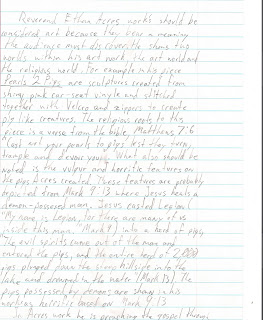 Reverend Ethan Acres works should be
considered art because they bear a meaning
the audience must discover the shams two
worlds within his art work, the art world and
the religious world. For example in his piece
Pearls 2 Pigs are sculptures created from
shiny pink car-seat vinyle and stitched
together with Velcro and zippers to create
pig like creatures. The religious roots to this
piece is a verse from the bible, Matthews 7:6
"Cast not your pearls to pigs lest they turn,
trample and devour you". What also should be
noted is the vulgur and horrific features on
the pigs Acres created. These feature are probably
depicted from Mark 9:13 where Jesus heals a
demon-possesed man. Jesus casted Legion (
"My name is Legion, for there are many of us
inside this man." (Mark 9) into a herd of pigs,
"The evil spirits came out of the man and
entered the pigs, and the entire herd of 2,000
pigs plunged down the steep hillside into the
lake and drowned in the water (Mark 13). The
pigs possessed by demons are shown in his
work being horrific based on Mark 9:13
In Acres work he is preaching the gospel through